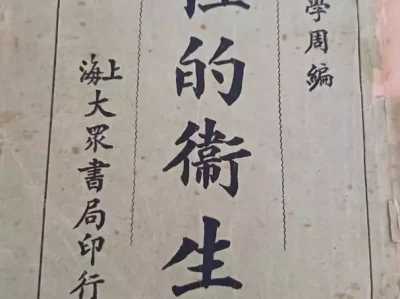 學周編
的衛生
上海大眾書局印行